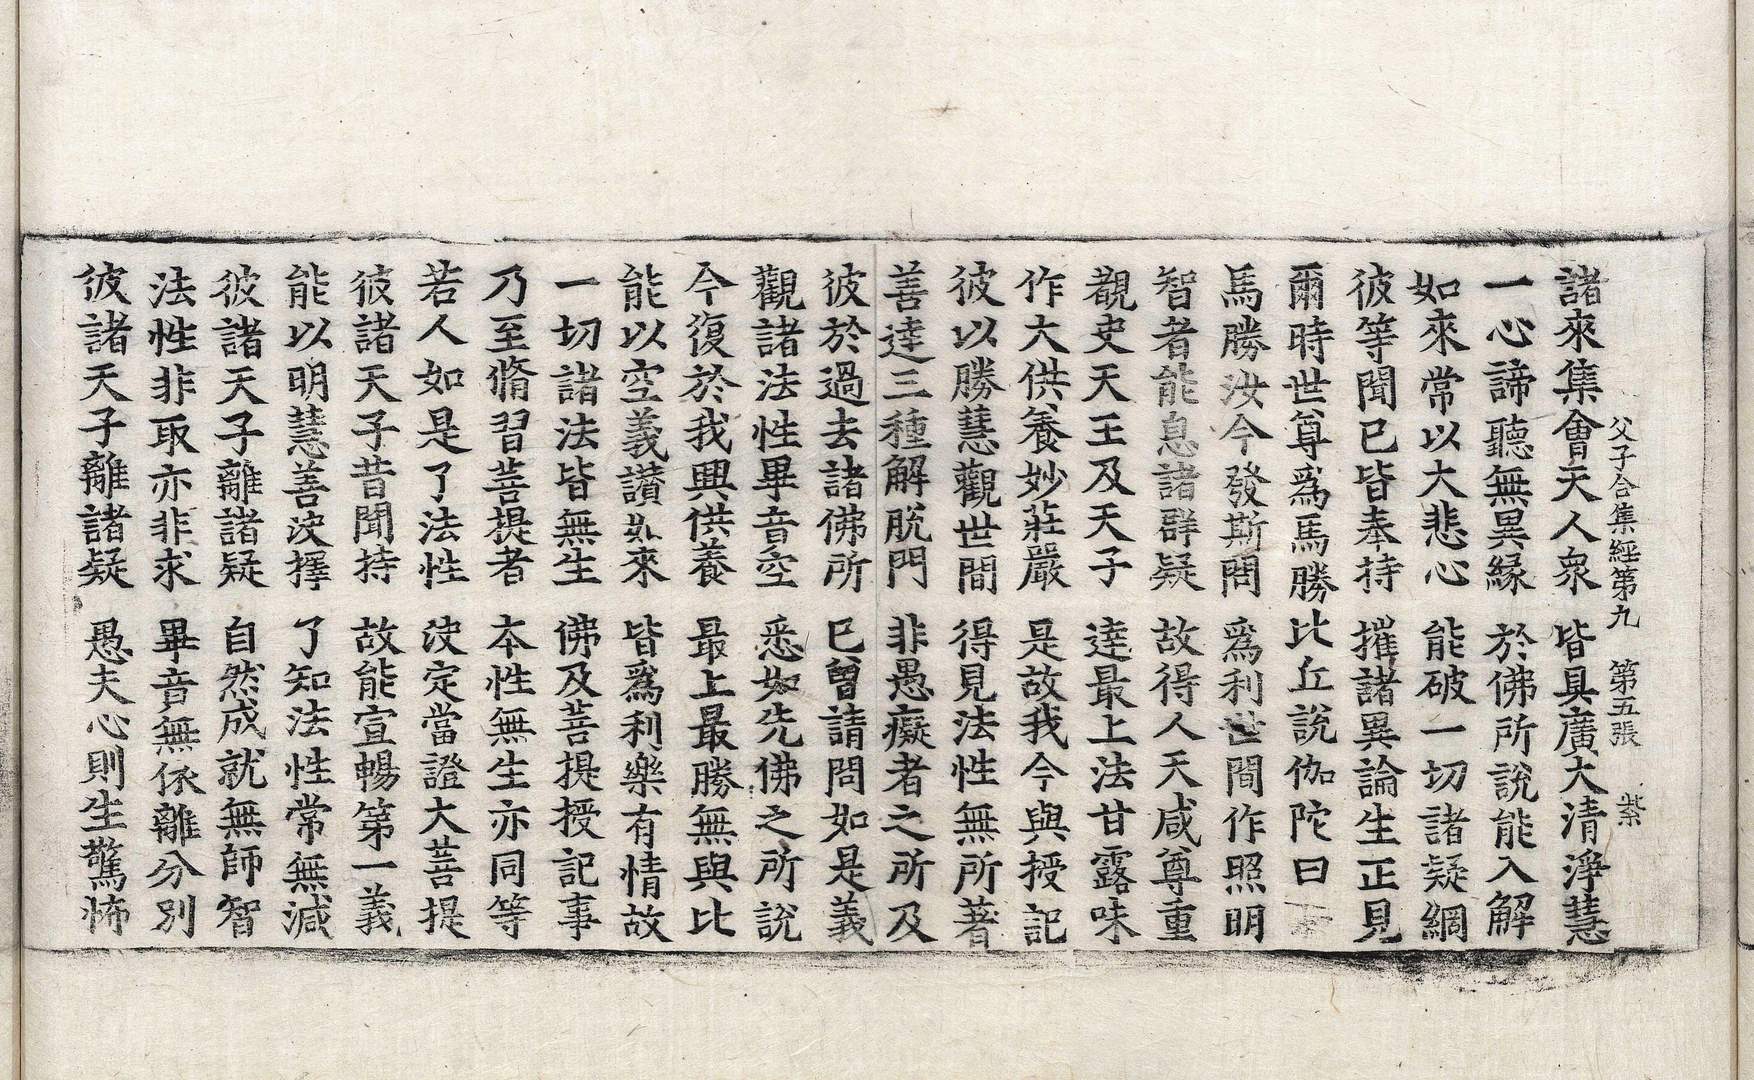 父子合集經第九　第五張　紫
諸來集會天人衆　皆具廣大清淨慧
一心諦聽無異緣　於佛所說能入解
如來常以大悲心　能破一切諸疑網
彼等聞已皆奉持　摧諸異論生正見
爾時世尊爲馬勝比丘說伽陀曰
馬勝汝今發斯問　爲利世間作照明
智者能息諸群疑　故得人天咸尊重
覩史天王及天子　達最上法甘露味
作大供養妙莊嚴　是故我今與授記
彼以勝慧觀世間　得見法性無所著
善達三種解脫門　非愚癡者之所及
彼於過去諸佛所　已曾請問如是義
觀諸法性畢音空　悉如先佛之所說
今復於我興供養　最上最勝無與比
能以空義讃如來　皆爲利樂有情故
一切諸法皆無生　佛及菩提授記事
乃至脩習菩提者　本性無生亦同等
若人如是了法性　決定當證大菩提
彼諸天子昔聞持　故能宣暢第一義
能以明慧善決擇　了知法性常無減
彼諸天子離諸疑　自然成就無師智
法性非取亦非求　畢音無依離分別
彼諸天子離諸疑　愚夫心則生驚怖